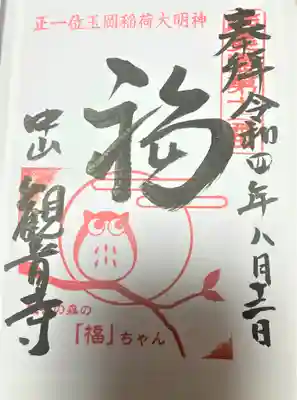 正一位玉岡稲荷大明神
奉拝
令和四年八月十二日
福
中山
観音寺
の森の
「福」ちゃん